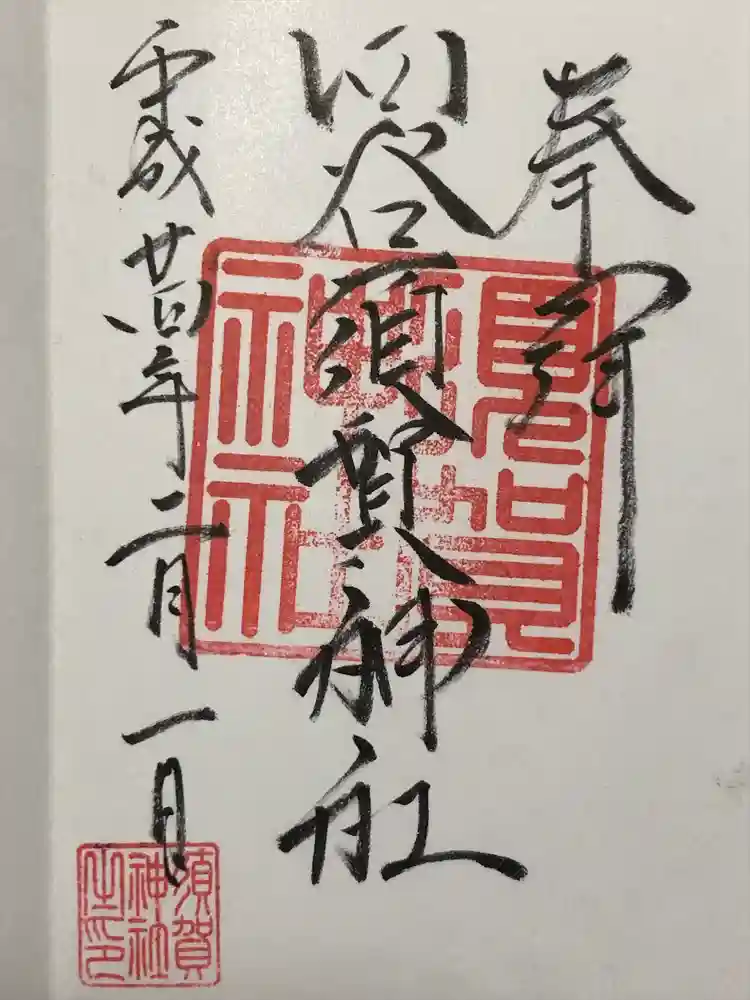 奉拝
四谷須賀神社
平成廿四年二月一日
須賀
神社
之印